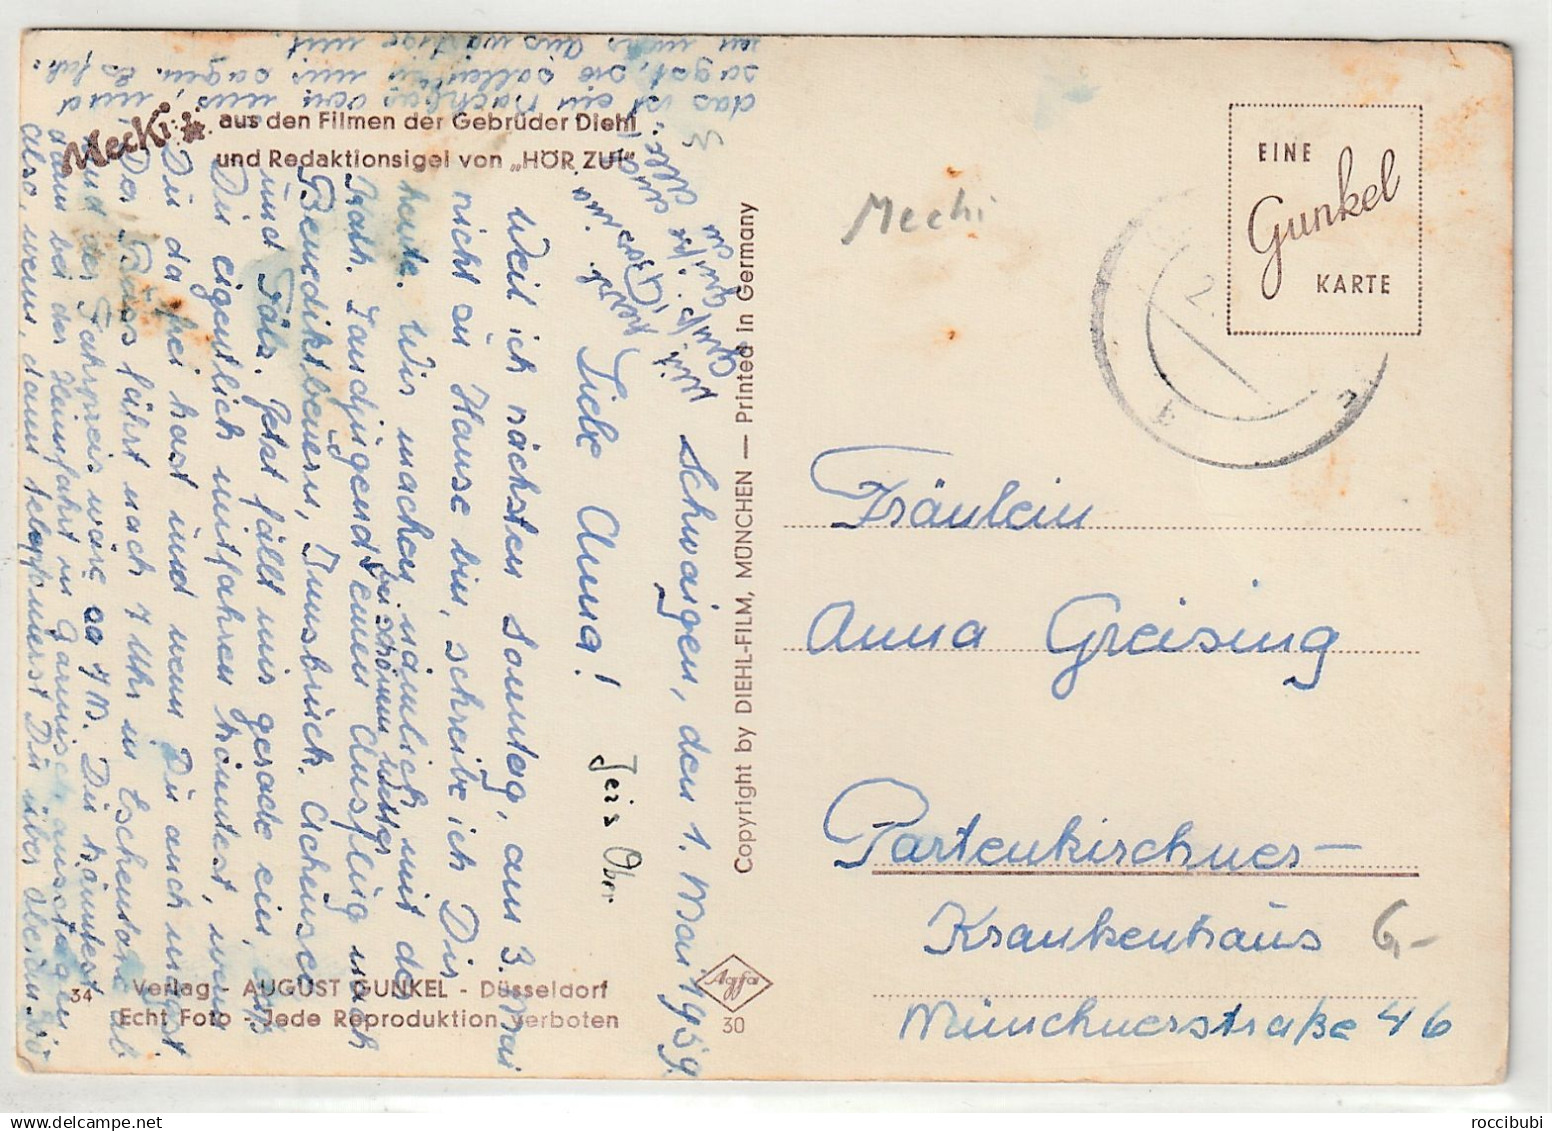 Mecki aus den Filmen der Gebrüder Diehl
und Redaktionsigel von „HÖR ZU!"
EINE
Gunkel
KARTE
Mecki
Fräulein
Anna Greising
Partenkirchner-
Krankenhaus
Münchnerstraße 46
6,-
Schwaigen, den 1. Mai 1959.
Liebe Anna!
Weil ich nächsten Sonntag, am 3. Mai
nicht zu Hause bin, schreibe ich Dir
heute. Wir machen nämlich mit der
Kath. Landjugend einen Ausflug nach
bei schönem Wetter
Benediktbeuern, Innsbruck, Achensee
und Tölz. Jetzt fällt mir gerade ein, daß
Du eigentlich mitfahren könntest, wenn
Du da frei hast und wenn Du auch magst
Der Bus fährt nach 7 Uhr in Eschenlohe ab
und der Fahrpreis wäre ca 7 M. Du könntest
dann bei der Heimfahrt in Garmisch aussteigen
also, wenn, dann telefonierst Du
das ist ein nachbar von uns, und
sagst, sie sollen es mir sagen. Es fah-
ren mehr auswärtige mit.
Copyright by DIEHL-FILM, MÜNCHEN — Printed in Germany
Agfa
30
34
Verlag - AUGUST GUNKEL - Düsseldorf
Echt Foto - Jede Reproduktion verboten